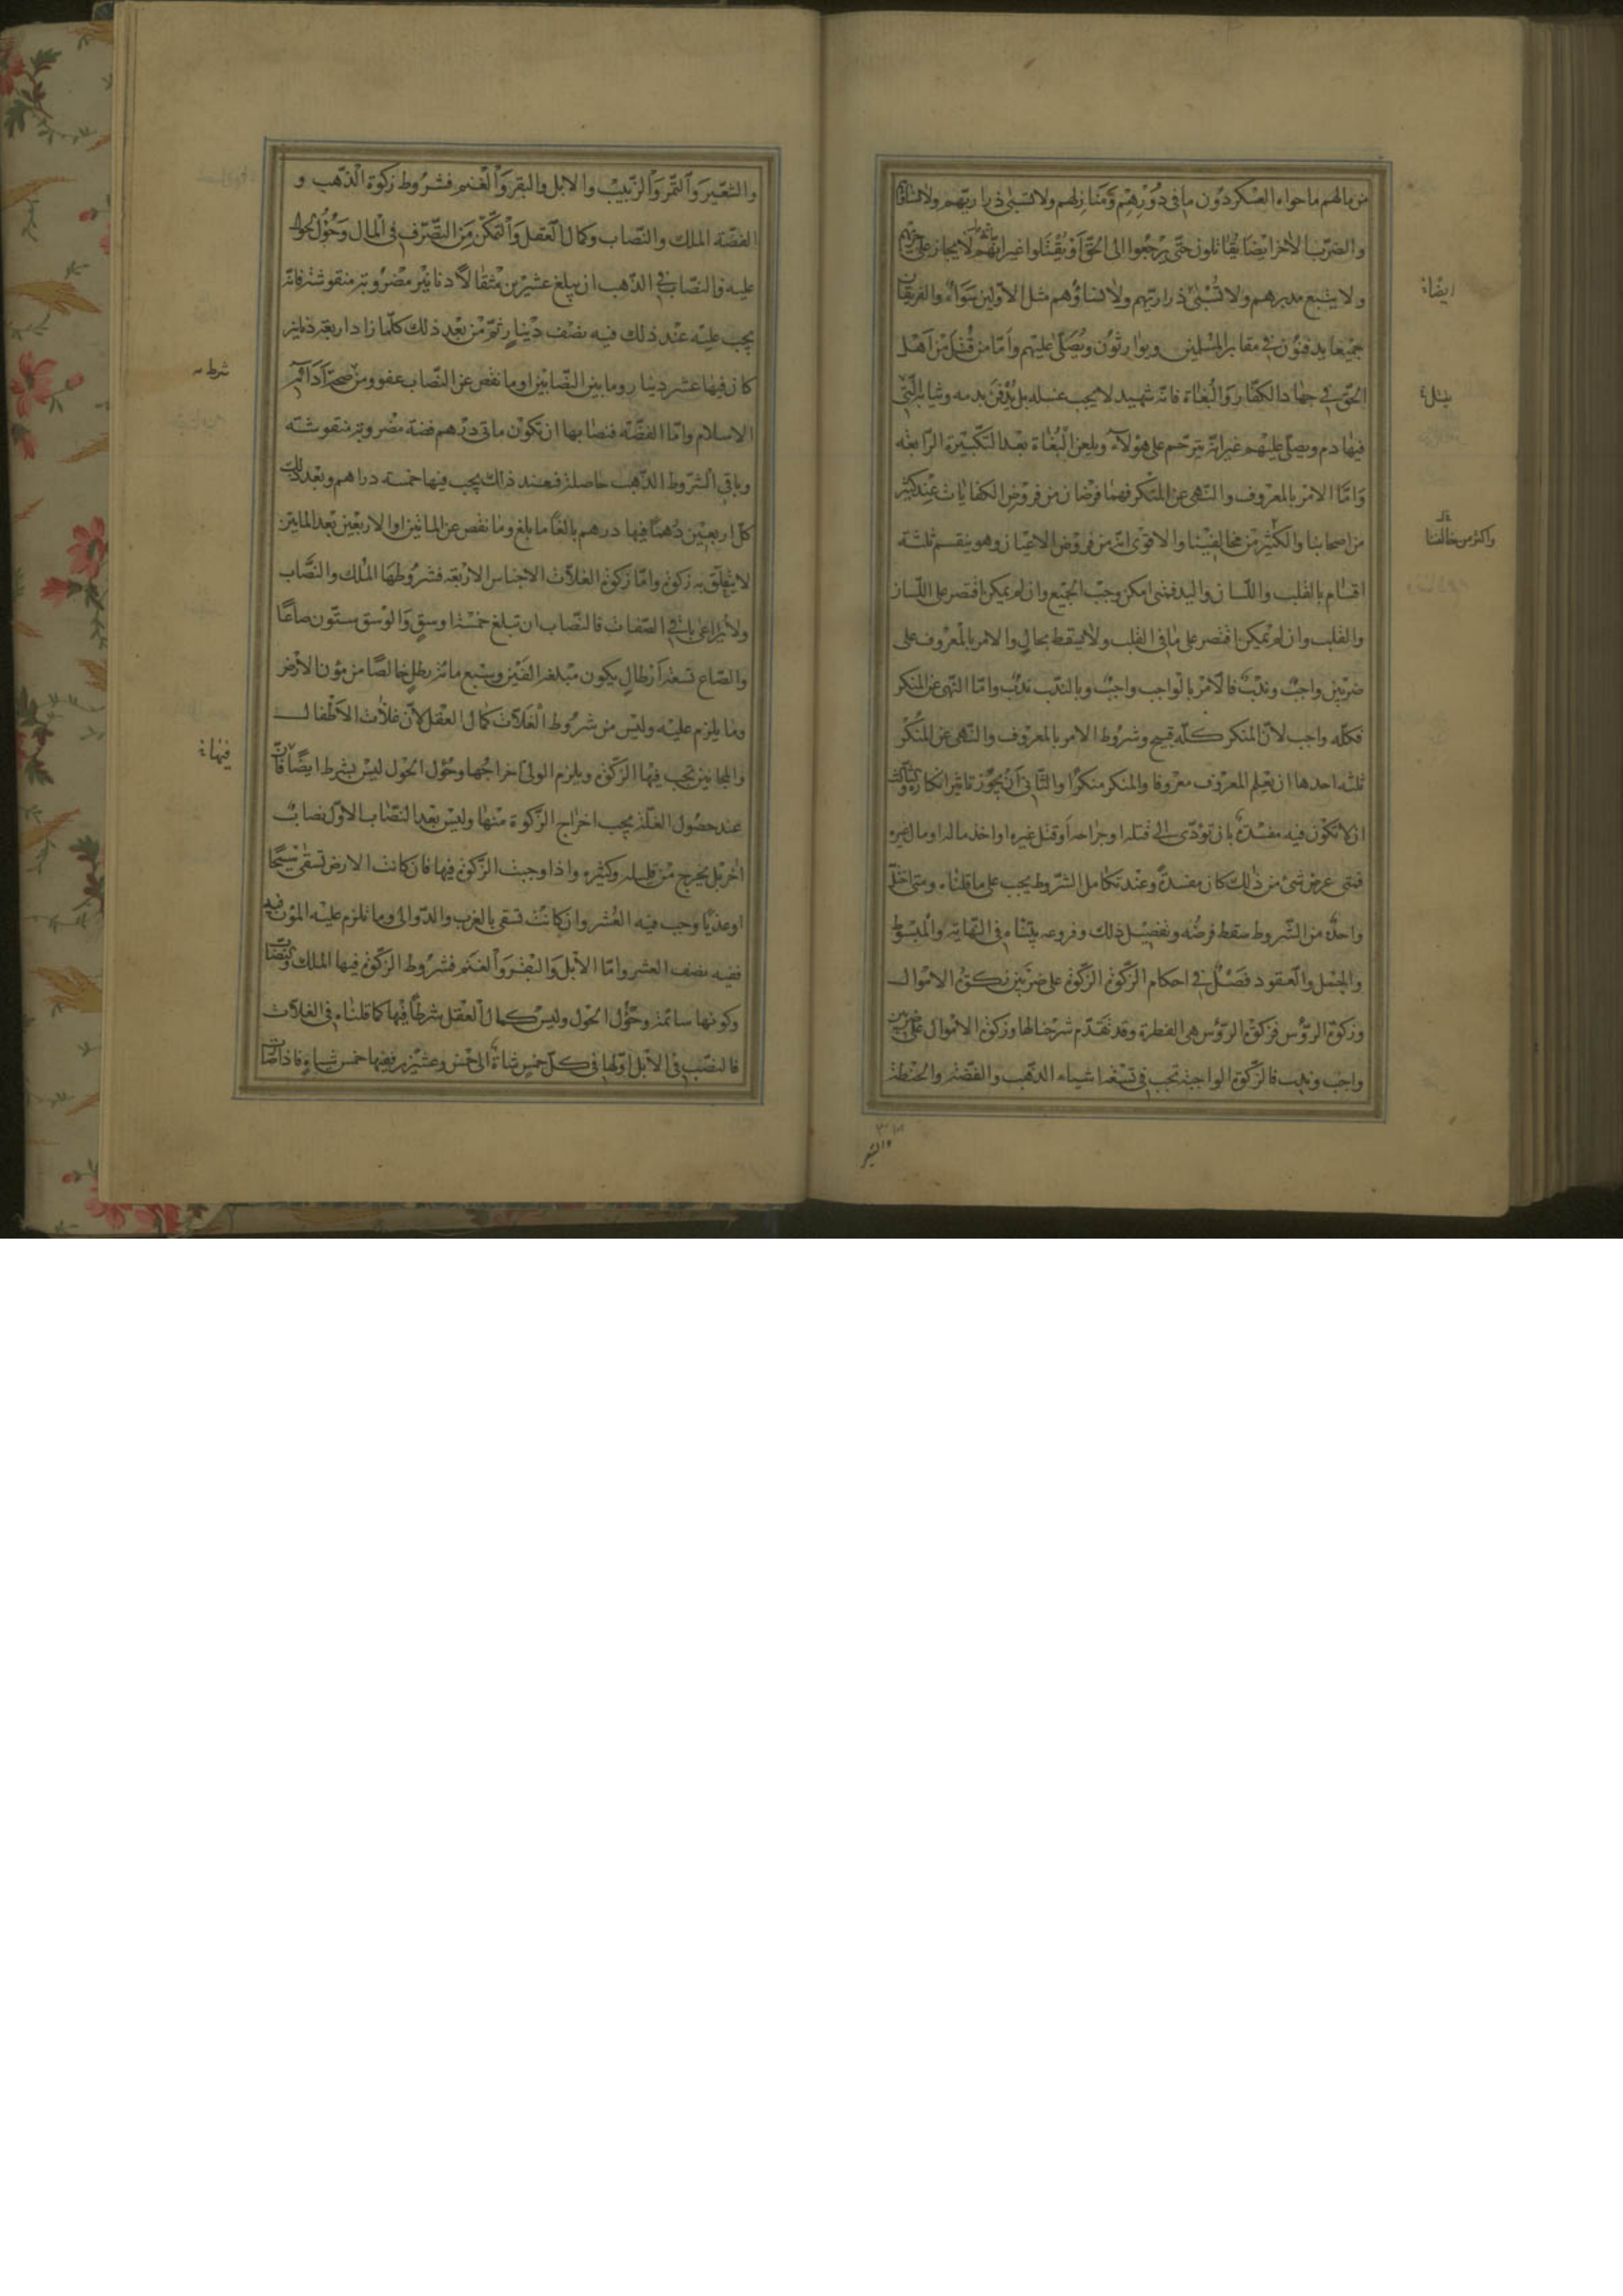 من مالهم ما حواه العسكر دون ما في دورهم ومنازلهم ولا تسبى ذراريهم ولا نساؤهم
والضرب الاخر ايضا يقاتلون حتى يرجعوا الى الحق او يقتلوا غير انهم لا يجاز على جريحهم
ولا يتبع مدبرهم ولا تسبى ذراريهم ولا نساؤهم مثل الاولين سواء والفريقان
جميعا يدفنون في مقابر المسلمين ويوارثون ويصلى عليهم واما من قتل من اهل
الحق في جهاد الكفار والبغاة فانه شهيد لا يجب غسله بل يدفن بدمه وثيابه التي
فيها دم ويصلى عليهم غير انه يترحم على هولاء ويلعن البغاة بعد التكبيرة الرابعة
واما الامر بالمعروف والنهى عن المنكر فهما فرضان من فروض الكفايات عند كثير
من اصحابنا والكثير من مخالفينا والاقوى انه من فروض الاعيان وهو ينقسم ثلثة
اقسام بالقلب واللسان واليد فمتى امكن وجب الجميع وان لم يمكن اقتصر على اللسان
والقلب وان لم يمكن اقتصر على ما في القلب ولا يسقط بحال والامر بالمعروف على
ضربين واجب وندب فالامر بالواجب واجب وبالندب ندب واما النهى عن المنكر
فكله واجب لان المنكر كله قبيح وشروط الامر بالمعروف والنهى عن المنكر
ثلثه احدها ان يعلم المعروف معروفا والمنكر منكرا والثانى ان يجوز تاثير انكاره والثالث
ان لا تكون فيه مفسدة بان تؤدى الى قتله او جراحه او قتل غيره او اخذ ماله او مال غيره
فمتى عرض شئ من ذلك كان مفسدة وعند تكامل الشروط يجب على ما قلناه ومتى اختل
واحد من الشروط سقط فرضه وتفصيل ذلك وفروعه بيناه في النهاية والمبسوط
والجمل والعقود فصل في احكام الزكوة الزكوة على ضربين زكوة الاموال
وزكوة الرؤس فزكوة الرؤس هى الفطرة وقد تقدم شرحنا لها وزكوة الاموال على ضربين
واجب وندب فالزكوة الواجبة تجب في تسعة اشياء الذهب والفضة والحنطة
ايضا
يقتل
واكثر من خالفنا
والشعير
والشعير والتمر والزبيب والابل والبقر والغنم فشروط زكوة الذهب و
الفضة الملك والنصاب وكمال العقل والتمكن من التصرف في المال وحؤل الحول
عليه والنصاب في الذهب ان يبلغ عشرين مثقالا دنانير مضروبة منقوشة فانه
يجب عليه عند ذلك فيه نصف دينار ثم من بعد ذلك كلما زاد اربعة دنانير
كان فيها عشر دينار وما بين النصابين او ما نقص عن النصاب عفو ومن صحة ادائهم
الاسلام واما الفضة فنصابها ان تكون ماتى درهم فضة مضروبة منقوشة
وباقي الشروط الذهب حاصلة فعند ذلك يجب فيها خمسة دراهم وبعد ذلك
كل اربعين درهما فيها درهم بالغا ما بلغ وما نقص عن الماتين او الاربعين بعد الماتين
لا يتعلق به زكوة واما زكوة الغلات الاجناس الاربعة فشروطها الملك والنصاب
ولا يراعى باقي الصفات فالنصاب ان تبلغ خمسة اوسق والوسق ستون صاعا
والصاع تسعة ارطال يكون مبلغه الفين وسبع مائة رطل خالصا من مؤن الارض
وما يلزم عليه وليس من شروط الغلات كمال العقل لان غلات الاطفال
والمجانين تجب فيها الزكوة ويلزم الولي اخراجها وحؤل الحول ليس بشرط ايضا فان
عند حصول الغلة يجب اخراج الزكوة منها وليس بعد النصاب الاول نصاب
اخر بل يخرج من قليله وكثيره واذا وجبت الزكوة فيها فان كانت الارض تسقى سيحا
او عذيا وجب فيه العشر وان كانت تسقى بالغرب والدوالى وما تلزم عليه المؤن فيه
ففيه نصف العشر واما الابل والبقر والغنم فشروط الزكوة فيها الملك والنصاب
وكونها سائمة وحؤل الحول وليس كمال العقل شرطا فيها كما قلناه في الغلات
فالنصب في الابل اولها في كل خمس شاة الى خمس وعشرين ففيها خمس شياه فاذا
شرط
فيها